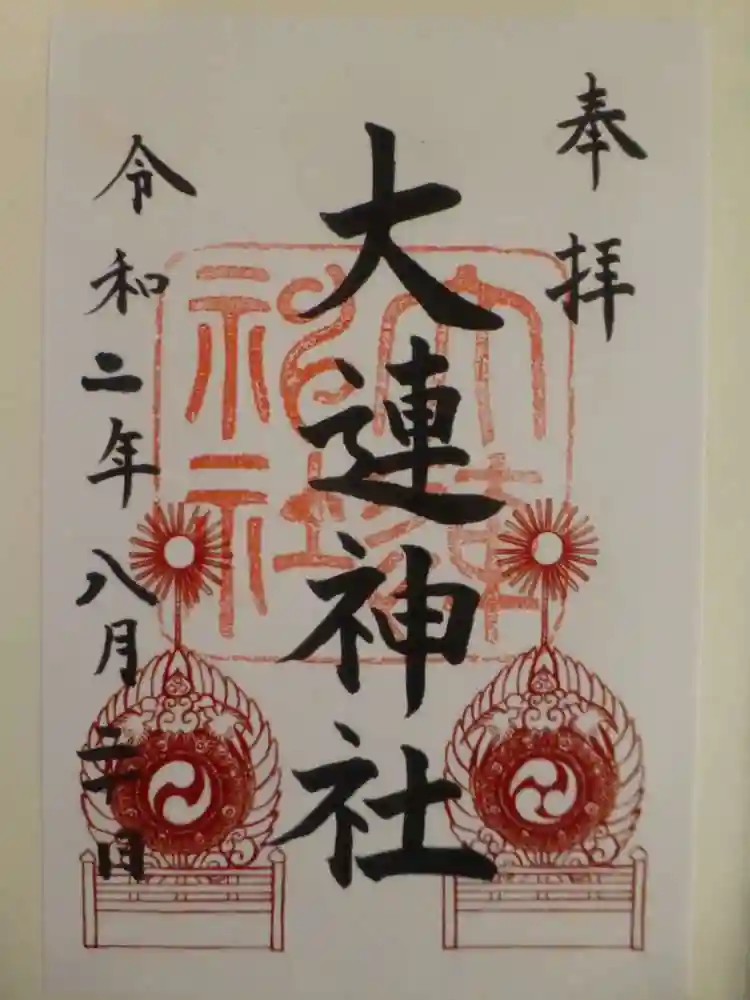 奉拝
大連神社
令和二年八月二十日
大連神社